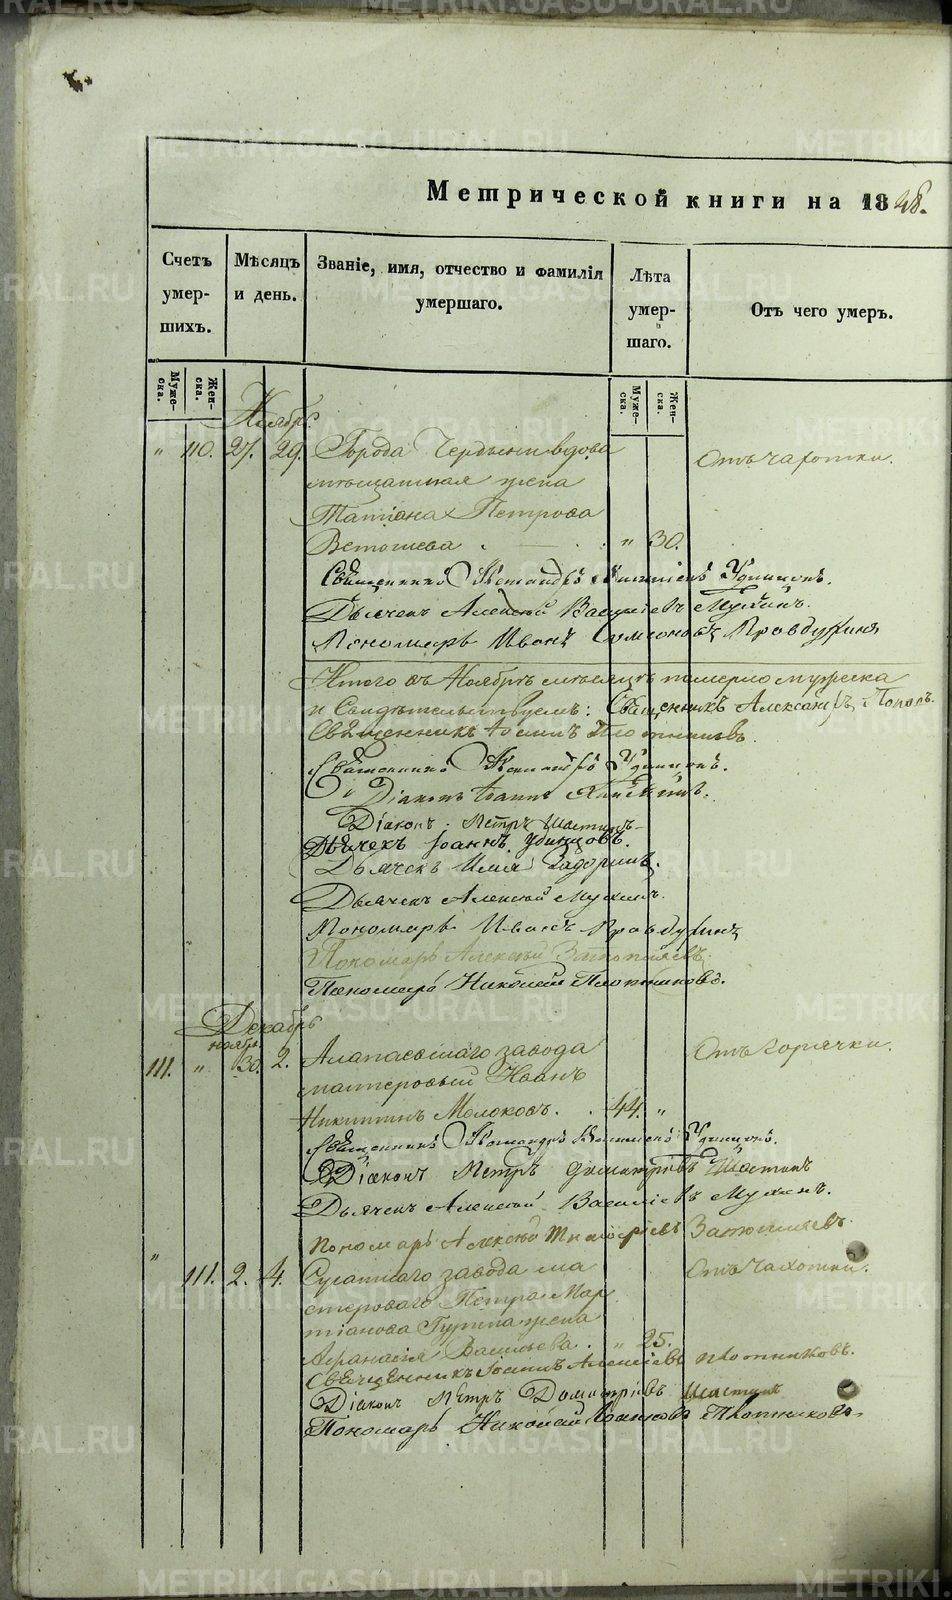 Метрической книги на 1848.
Счетъ умер-шихъ.
Мѣсяцъ и день.
Званіе, имя, отчество и фамилія умершаго.
Лѣта умер-шаго.
Отъ чего умеръ.
Муже-ска.
Жен-ска.
Муже-ска.
Жен-ска.
Ноябрь.
" 110. 27. 29. Города Чердыни вдова
Отъ чахотки.
мѣщанская жена
Татіана Петрова
" 30.
Священникъ Удинцовъ.
Дьячекъ Алексѣй Васильевъ Мухинъ.
Пономарь Иванъ Симеоновъ Правдухинъ
Итого въ Ноябрѣ мѣсяцѣ померло мужеска
и Свидѣтельствуемъ: Священникъ Александръ Поповъ.
Священникъ Іоаннъ Плотниковъ.
Священникъ Удинцовъ.
Діаконъ Іоаннъ
Діаконъ Петръ Шастинъ
Дьячекъ Іоаннъ Удинцовъ.
Дьячекъ Илія Задоринъ.
Дьячекъ Алексѣй Мухинъ.
Пономарь Иванъ Правдухинъ
Пономарь Алексѣй
Пономарь Николай Плотниковъ.
Декабрь
ноябрь
111. " 30. 2. Алапаевскаго завода
Отъ горячки.
мастеровый Иванъ
Никитинъ Молоковъ. 44. "
Священникъ Удинцовъ.
Діаконъ Петръ Димитріевъ Шастинъ
Дьячекъ Алексѣй Васильевъ Мухинъ.
Пономарь Алексѣй
" 111. 2. 4. Сусанскаго завода ма
Отъ чахотки.
стероваго Петра Мар
тіанова жена
Афанасія Васильева. " 25.
Священникъ Іоаннъ Алексіевъ Плотниковъ.
Діаконъ Петръ Димитріевъ Шастинъ
Пономарь Николай Іоанновъ Плотниковъ
METRIKI.GASO-URAL.RU